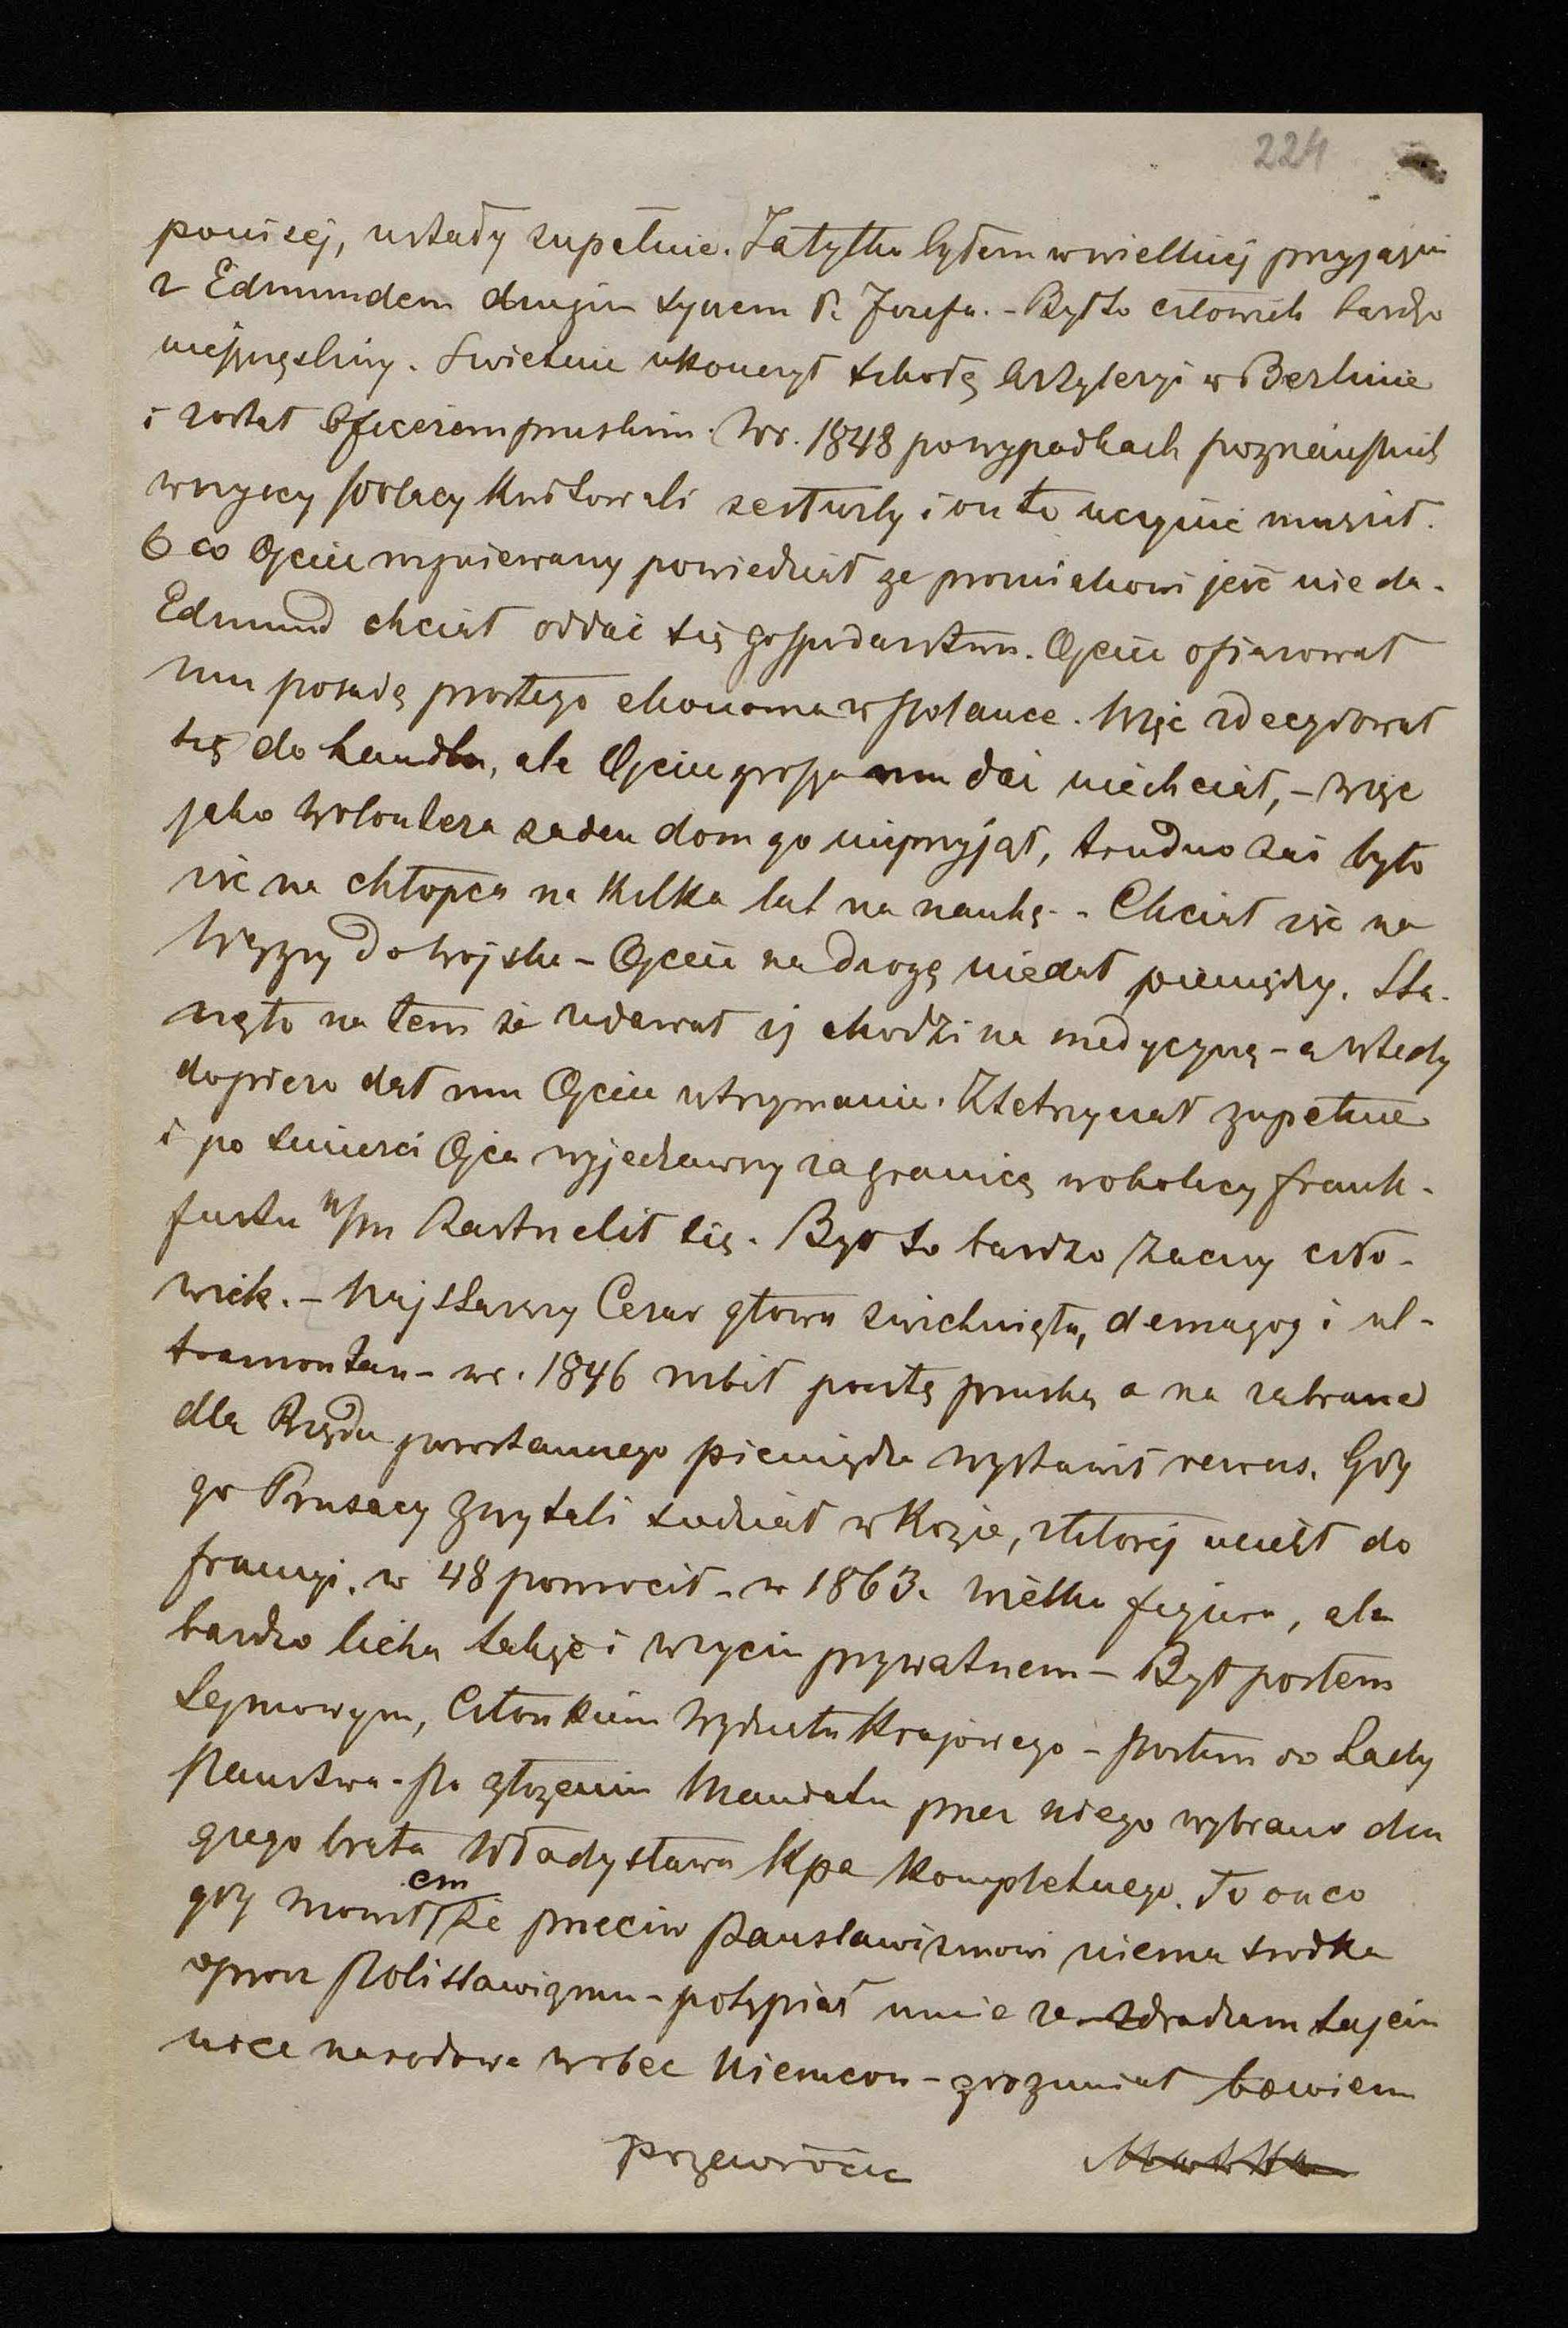 224
poniżej, ustały zupełnie. Ja tylko byłem w wielkiej przyjaźni
z Edmundem drugim synem P. Józefa. - Był to człowiek bardzo
nieszczęśliwy. Swietnie ukończył szkołę Artyleryi w Berlinie
i został Oficerem pruskim. W r. 1848 po wypadkach poznańskich
wszyscy Polacy kwitowali ze służby i on to uczynić musiał.
O co Ojciec rozgniewany powiedział ze próżniakowi jeść nie da.
Edmund chciał oddać się gospodarstwu. Ojciec ofiarował
mu posadę prostego ekonoma w Polance. Więc zdecydował
się do handlu, ale Ojciec grosza mu dać niechciał, - więc
jako Wolontera zaden dom go nieprzyjął, trudno zaś było
iść na chłopca na kilka lat na naukę. - Chciał iść na
Węgry do wojska - Ojciec na drogę niedał pieniędzy. Sta-
nęło na tem że udawał iż chodzi na medycynę - a wtedy
dopiero dał mu Ojciec utrzymanie. Ztetryczał zupełnie
i po śmierci Ojca wyjechawszy za granicę w okolicy Frank-
furtu n/m Zastrzelił się. Był to bardzo zacny czło-
wiek. - Najstarszy Cezar głowa zwichnięta, demagog i ul-
tramontan - w r. 1846 rozbił pocztę pruską a na zabrane
dla Rządu powstannego pieniądze wystawił rewers. Gdy
go Prusacy Zwytali siedział w Kozie, z której uciekł do
francyi. w 48 powrócił - w 1863. wielka figura, ale
bardzo licha także i w życiu prywatnem - Był posłem
Sejmowym, Członkiem Wydziału Krajowego - posłem do Rady
Państwa. Po złożeniu Mandatu przez niego wybrano dru
giego brata Władysława Kpa kompletnego. To on co
gdy mówiłem że przeciw Panslawizmowi niema srodka
oprócz Polislawizmu - potępiał mnie ze zdradzam tajem
nice narodowe wobec Niemców - zrozumiał bowiem
przewrócić Matka